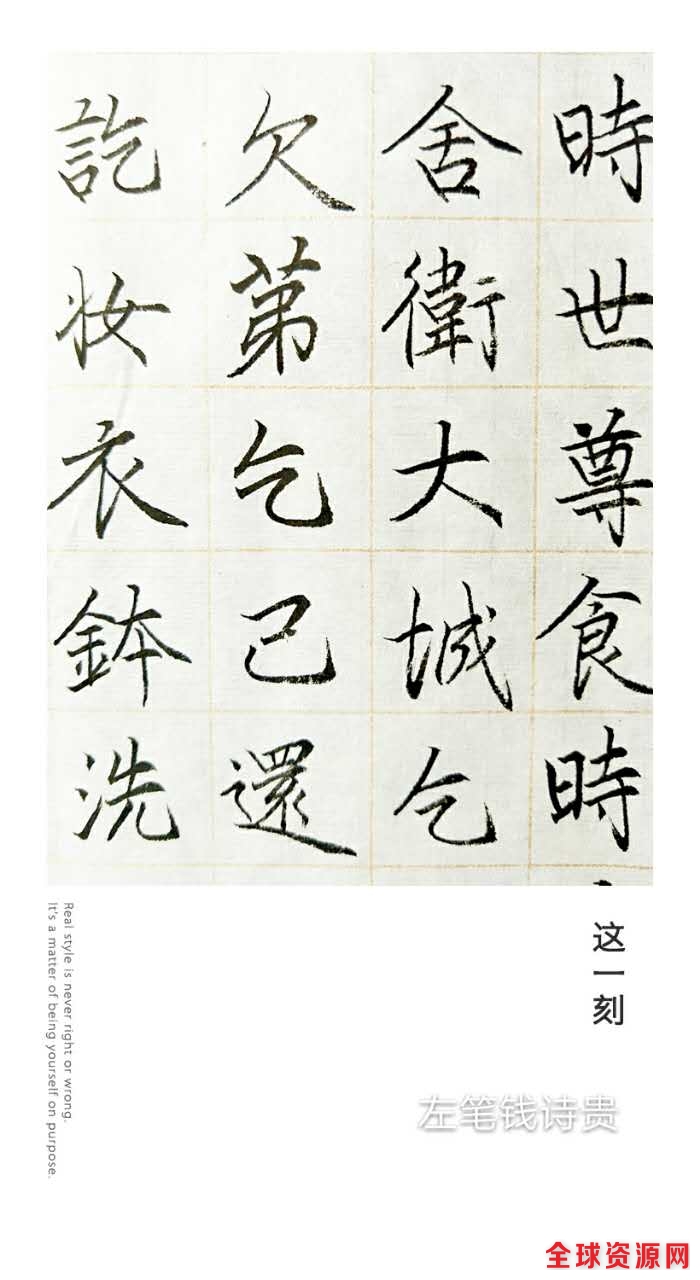 時世尊食時
舍衛大城乞
欠苐乞已還
訖妆衣鉢洗
这一刻
左笔钱诗贵
Real style is never right or wrong.
It's a matter of being yourself on purpose.
全球资源网